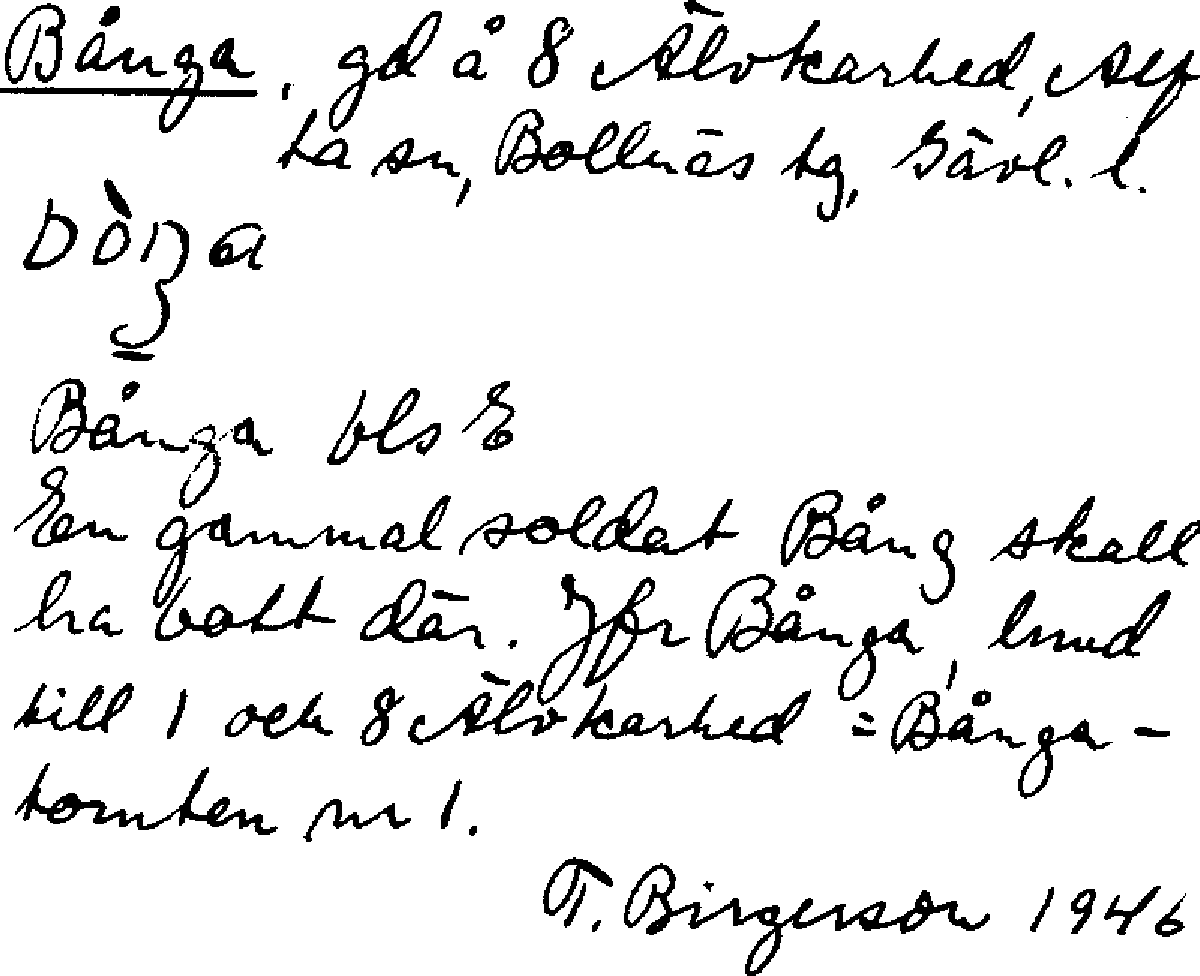 Bånga, gd å 8 Älvkarhed, Alf
ta sn, Bollnäs tg, Gävl. l.
bòŋa
Bånga bls E
En gammal soldat Bång skall
ha bott där. Jfr Bånga, lmd
till 1 och 8 Älvkarhed = Bånga-
tomten nr 1.
T. Birgerson 1946